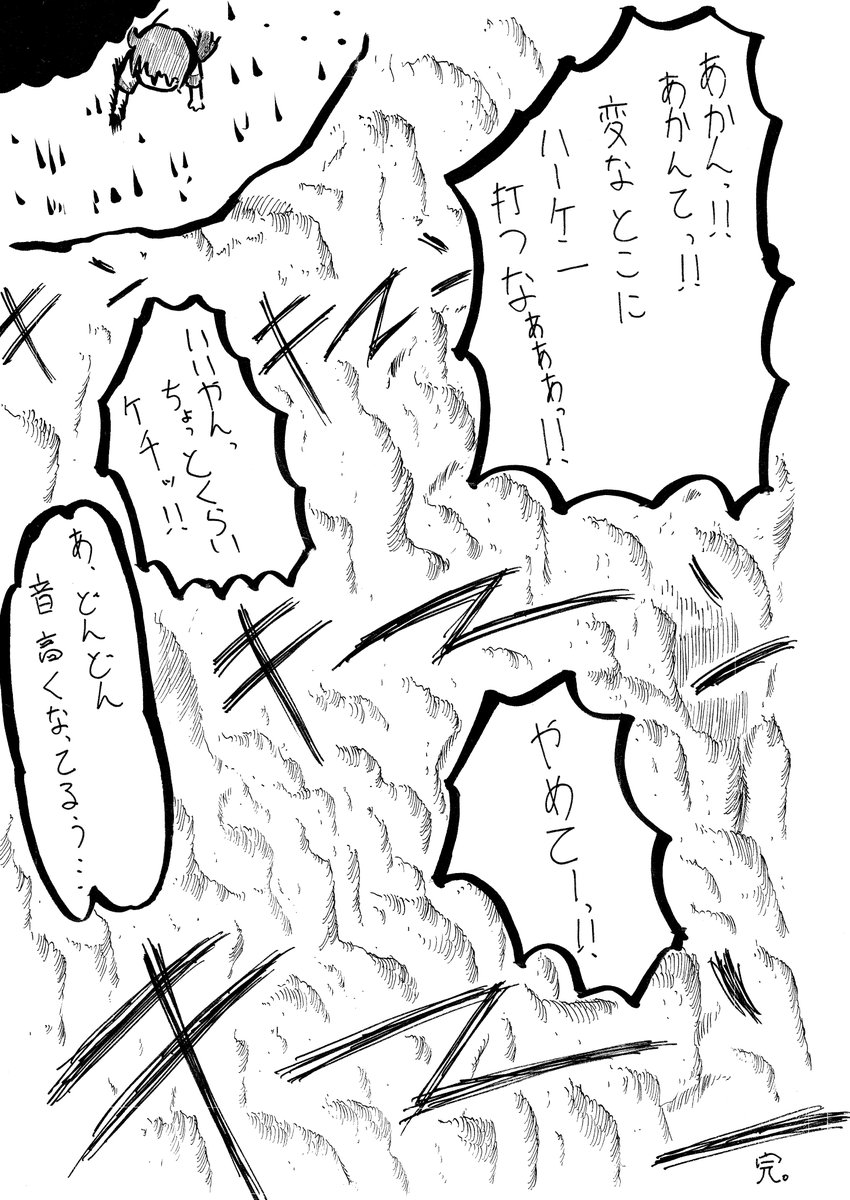 あかんっ!!
あかんてっ!!
変なとこに
ハーケン
打つなぁぁぁっ!!
キーン
いいやんっ
ちょっとくらい
ケチッ!!
あ、どんどん
音高くなってるぅ…
キーン
やめてーっ!!
キーン
完。